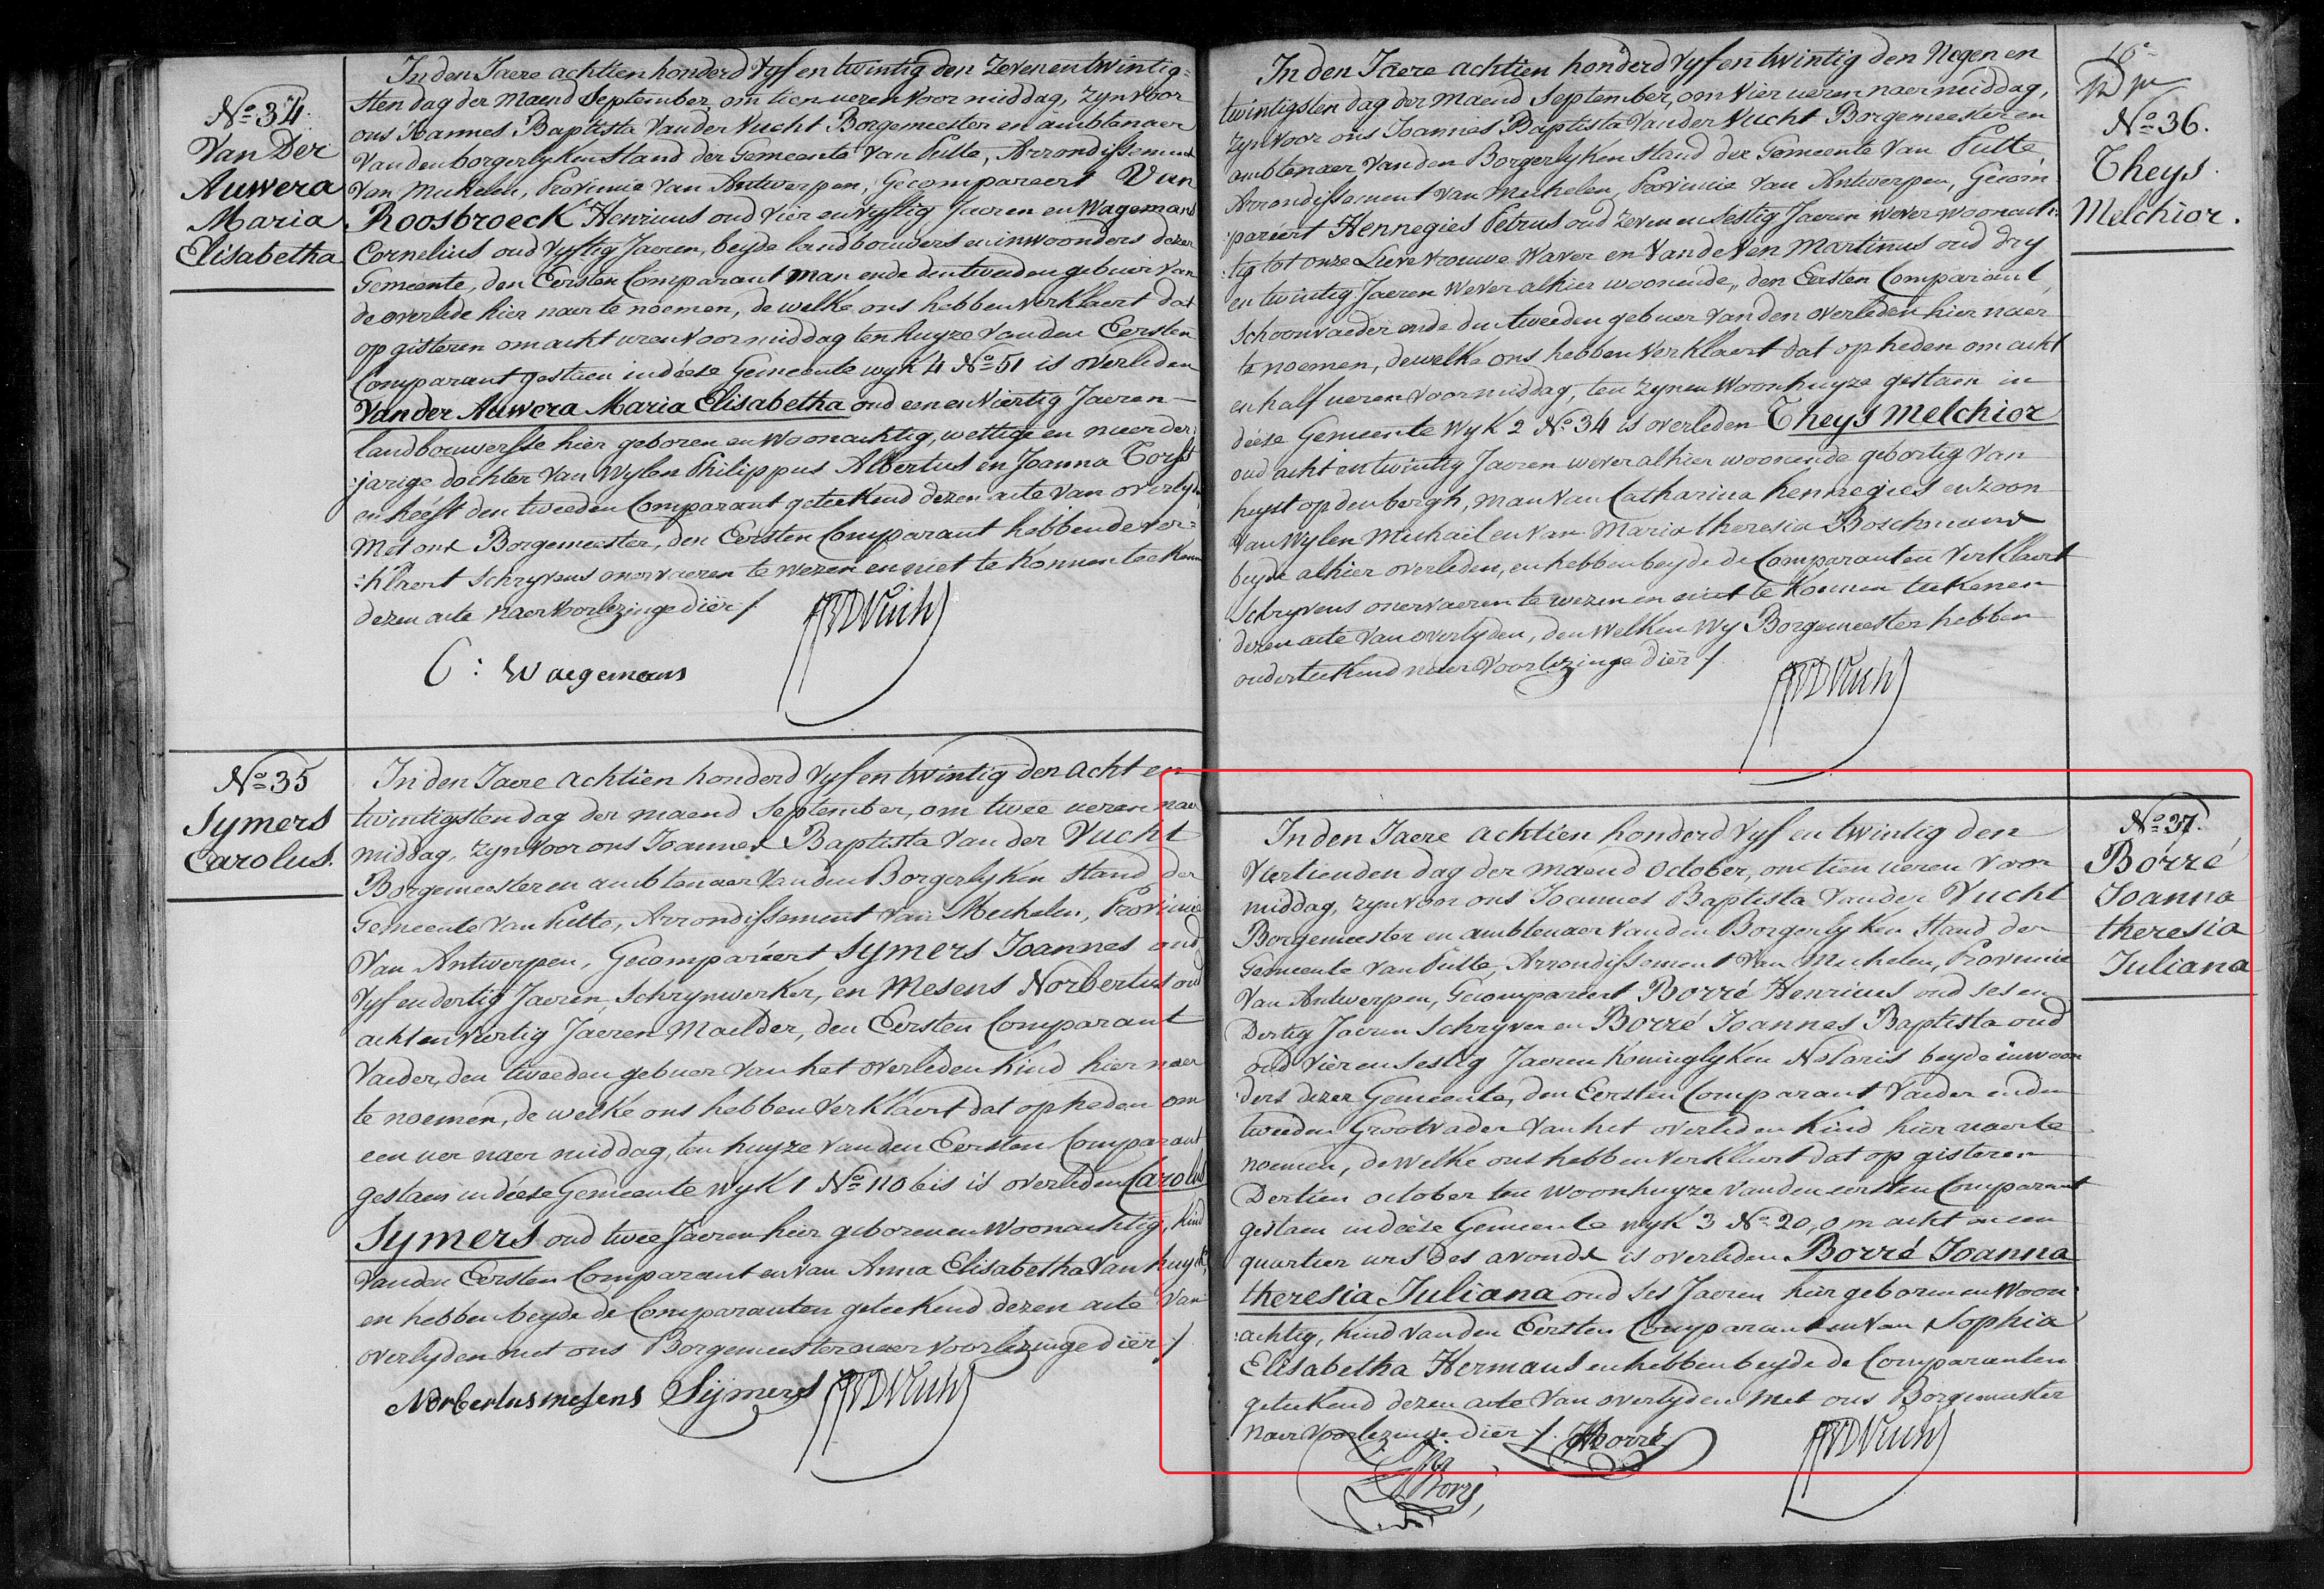 No 34.
Van Der
Auwera
Maria
Elisabetha
In den Jaere achtien honderd vyf en twintig den Zeven en twintig=
sten dag der Maend September, om tien ueren voor middag, zyn voor
ons Joannes Baptista Vander Vucht Borgemeester en ambtenaer
van den borgerlyken stand der Gemeente van Putte, Arrondissement
van Mechelen, Provincie van Antwerpen, Gecompareert Van
Roosbroeck Henricus oud vier en vyftig Jaeren en Wagemans
Cornelius oud vyftig Jaeren, beyde landbouwers en inwoonders dezer
Gemeente, den Eersten Comparant man ende den tweeden gebuer van
de overlede hier naer te noemen, de welke ons hebben verklaert dat
op gisteren om acht uren voor middag ten huyze van den Eersten
Comparant gestaen in deese Gemeente wyk 4 No 51 is overleden
Van der Auwera Maria Elisabetha oud een en viertig Jaeren
landbouwersse hier geboren en woonachtig, wettige en meerder
:jarige dochter van wylen Philippus Albertus en Joanna Torfs
en heeft den tweeden Comparant geteekend dezen acte van overlyden
Met ons Borgemeester, den Eersten Comparant hebbende ver=
:klaert schryvens onervaeren te wezen en niet te konnen teekenen
dezen acte naer voorlezinge diër /.
C: Waegemans
JBVDVucht
No 35
Symers
Carolus.
In den Jaere achtien honderd vyf en twintig den acht en
twintigsten dag der maend September, om twee ueren naer
middag, zyn voor ons Joannes Baptista Van der Vucht
Borgemeester en ambtenaer van den Borgerlyken stand der
Gemeente van Putte, Arrondissement van Mechelen, Provincie
Van Antwerpen, Gecompareert Symers Joannes oud
Vyf en dertig Jaeren, Schrynwerker, en Mesens Norbertus oud
acht en viertig Jaeren Maelder, den Eersten Comparant
Vaeder, den tweeden gebuer van het overleden Kind hier naer
te noemen, de welke ons hebben verklaert dat op heden om
een uer naer middag, ten huyze van den Eersten Comparant
gestaen in deese Gemeente wyk 1 No 110 bis is overleden Carolus
Symers oud twee Jaeren hier geboren en woonachtig, kind
van den Eersten Comparant en van Anna Elisabetha Van
en hebben beyde de Comparanten geteekend dezen acte van
overlyden met ons Borgemeester naer voorlezinge diër /
Norbertus mesens Sijmers JBVDVucht
In den Jaere achtien honderd vyf en twintig den Negen en
twintigsten dag der maend September, om vier ueren naer middag,
zyn voor ons Joannes Baptista Vander Vucht Borgemeester en
ambtenaer van den Borgerlyken stand der Gemeente van Putte
Arrondissement van Mechelen, Provincie van Antwerpen, Gecom
:pareert Hennegies Petrus oud zeven en sestig Jaeren wever woonach:
:tig tot onze Lieve vrouwe Waver en Van de Ven Martinus oud dry
en twintig Jaeren wever alhier woonende, den Eersten Comparant,
Schoonvaeder ende den tweeden gebuer van den overleden hier naer
te noemen, dewelke ons hebben verklaert dat op heden om acht
en half ueren voormiddag, ten zynen woonhuyze gestaen in
deese Gemeente Wyk 2 No 34 is overleden Theys Melchior
oud acht en twintig Jaeren wever alhier woonende gebortig van
heyst op den bergh, man van Catharina hennegies en zoon
van wylen Michael en van Maria theresia Boschmans
beyde alhier overleden, en hebben beyde de Comparanten verklaert
schryvens onervaeren te wezen en niet te konnen teekenen
dezen acte van overlyden, den welken wy Borgemeester hebben
onderteekend naer voorlezinge diër /.
JBVDVucht
16e
No 36.
Theys
Melchior.
In den Jaere achtien honderd vyf en twintig den
Viertienden dag der maend October, om tien ueren voor
middag, zyn voor ons Joannes Baptista Vander Vucht
Borgemeester en ambtenaer van den Borgerlyken Stand der
Gemeente van Putte, Arrondissement van Mechelen, Provincie
Van Antwerpen, Gecompareert Borré Henricus oud ses en
Dertig Jaeren Schryver en Borré Joannes Baptista oud
oud vier en sestig Jaeren Koninglyken Notaris beyde inwoon
:ders dezer Gemeente, den Eersten Comparant Vaeder en den
tweeden Grootvader van het overleden kind hier naer te
noemen, dewelke ons hebben verklaert dat op gisteren
Dertien october ten woonhuyze van den eersten Comparant
gestaen in deese Gemeente wyk 3 No 20, om acht en een
quartier urs des avonds is overleden Borré Joanna
theresia Juliana oud ses Jaeren hier geboren en Woon
:achtig, kind van den Eersten Comparant en van Sophia
Elisabetha Hermans en hebben beyde de Comparanten
geteekend dezen acte van overlyden met ons Borgemeester
naer voorlezinge diër /.
Borré
JBVDVucht
Borré
No 37.
Borré
Joanna
theresia
Juliana